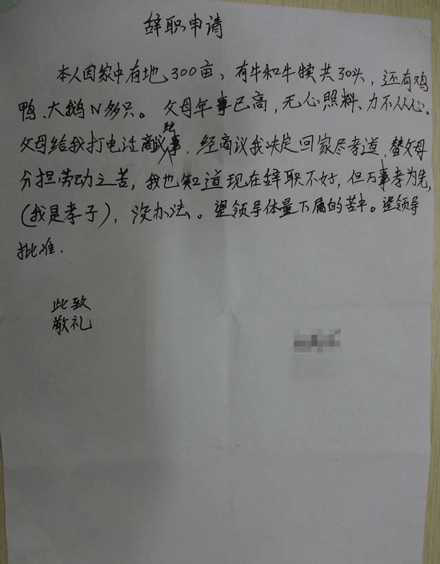 辞职申请
本人因家中有地300亩、有牛和牛犊共30头,还有鸡
鸭、大鹅N多只。父母年事已高,无心照料、力不从心。
父母给我打电话商议此事.经商议我决定回家尽孝道、替父母
分担劳动之苦,我也知道现在辞职不好,但万事孝为先,
(我是孝子),没办法。望领导体量下属的苦中。望领导
批准.
此致
敬礼